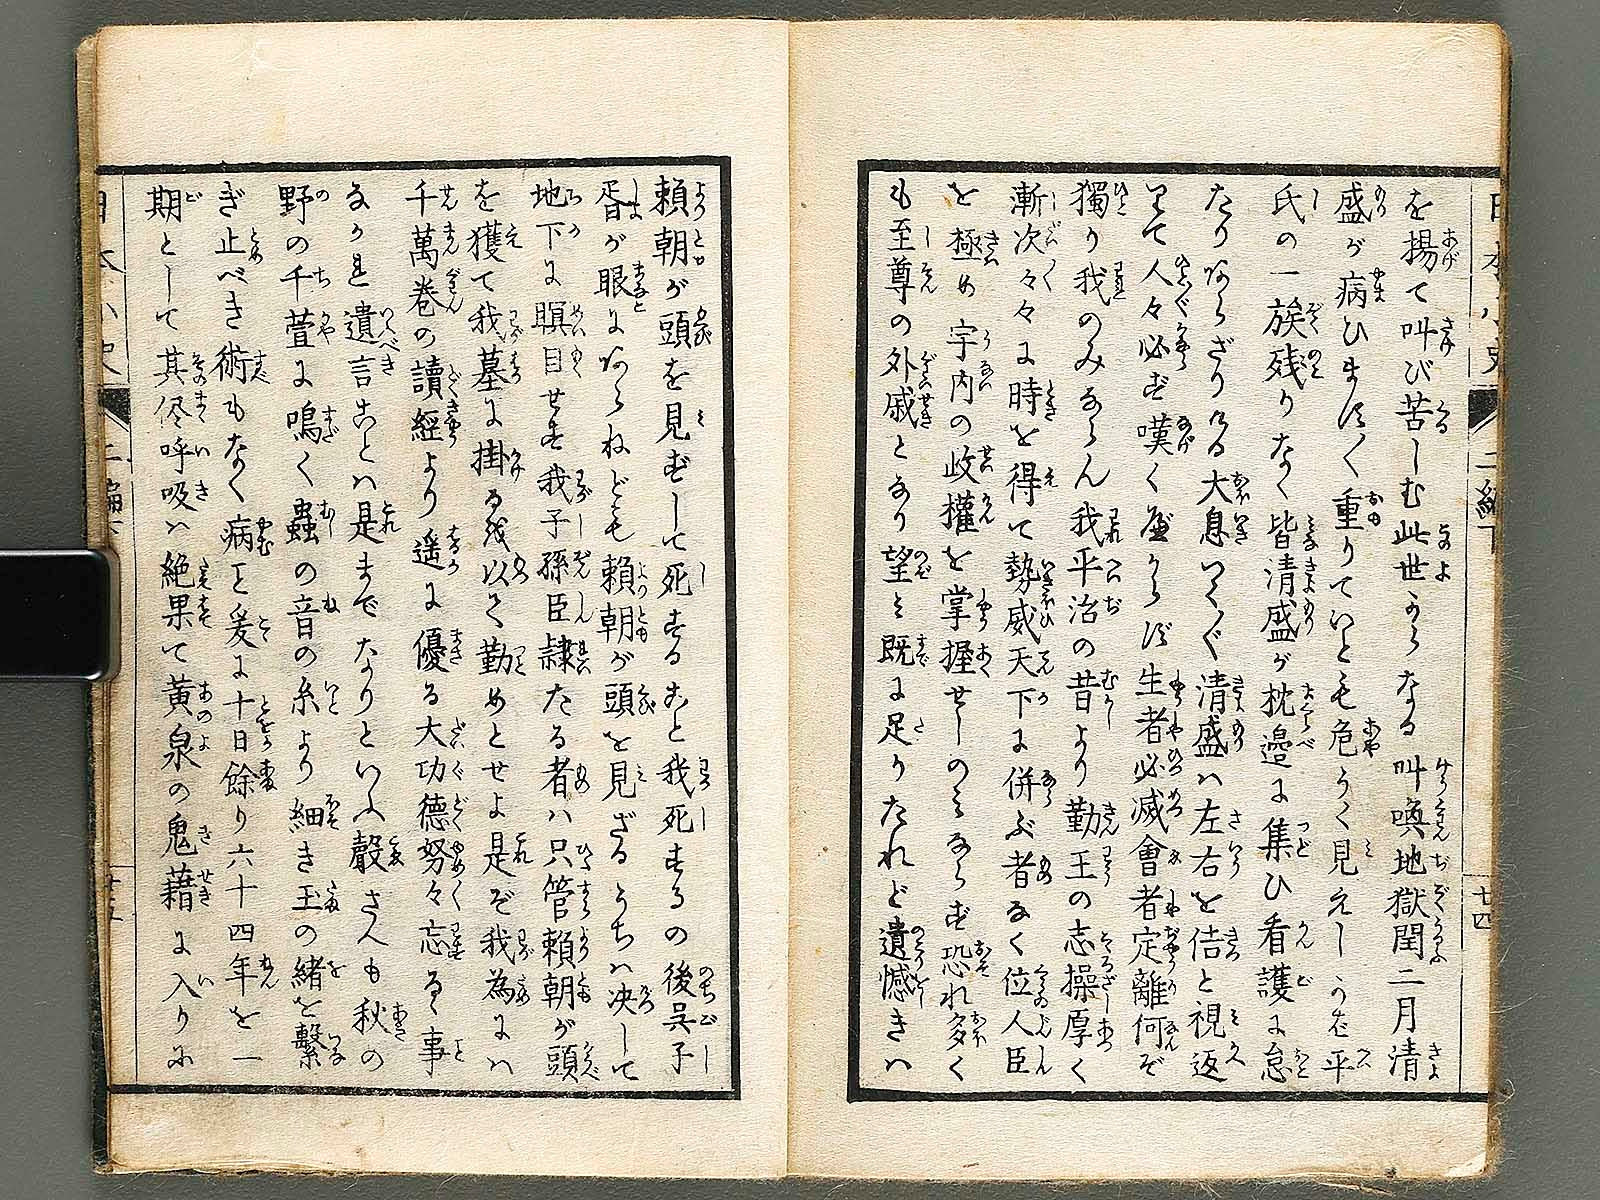 を揚て叫び苦しむ此世からなる叫喚地獄閏二月清
盛が病ひます〳〵重りていとゞ危うく見えしかば平
氏の一族残りなく皆清盛が枕邉に集ひ看護に怠
たりあらざりける大息つくづく清盛ハ左右を佶と視返
りて人々必ず嘆く べからず生者必滅會者定離何ぞ
獨り我のみならん我平治の昔より勤王の志操厚く
漸次々々に時を得て勢威天下に併ぶ者なく位人臣
を極め宇内の政權を掌握せしのみならず恐れ多く
も至尊の外戚となり望み既に足りたれど遺憾きハ
頼朝が頭を見ずして死することも我死するの後呉子
胥が眼にあらねども頼朝が頭を見ざるうちハ决して
地下に瞑目せず我子孫臣隷たる者ハ只管頼朝が頭
を獲て我墓に掛るを以て勤めとせよ是ぞ我為にハ
千萬巻の讀経より遥に優る大功德努々忘るゝ事
なかれ遺言ことハ是までなりといふ聲さへも秋の
野の千萱に鳴く蟲の音の糸より細き玉の緒を繋
ぎ止べき術もなく病こと爰に十日餘り六十四年を一
期として其侭呼吸ハ絶果て黄泉の鬼藉に入りに
日本小史
二編下
廿四